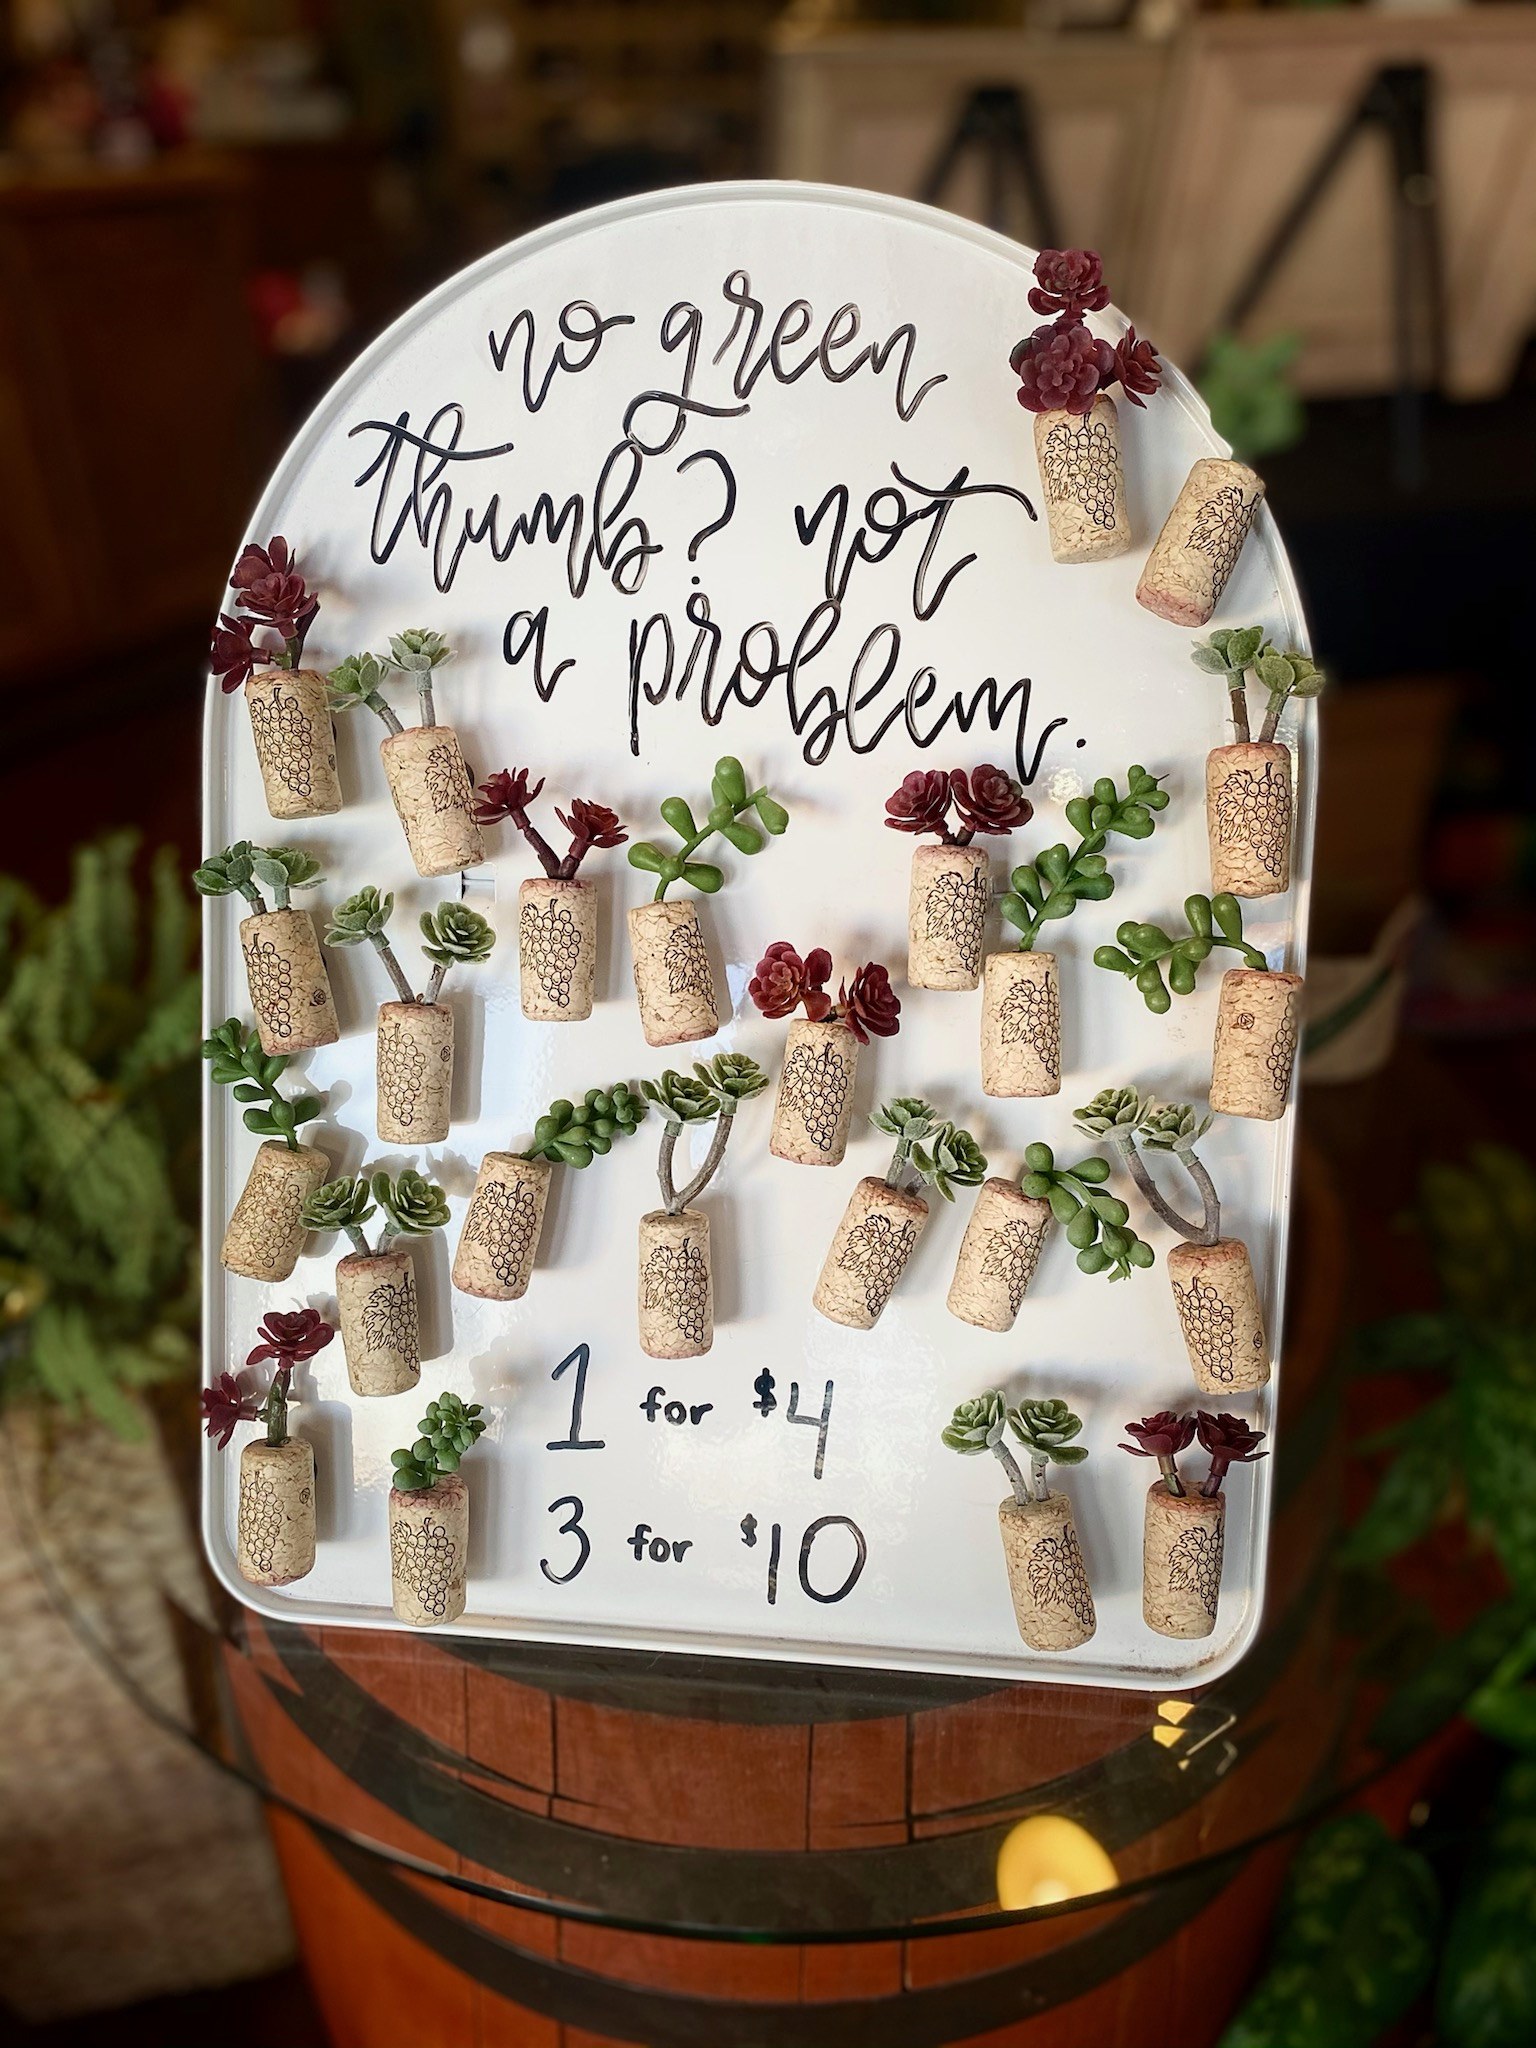 no green
thumb? not
a problem.
1 for $4
3 for $10